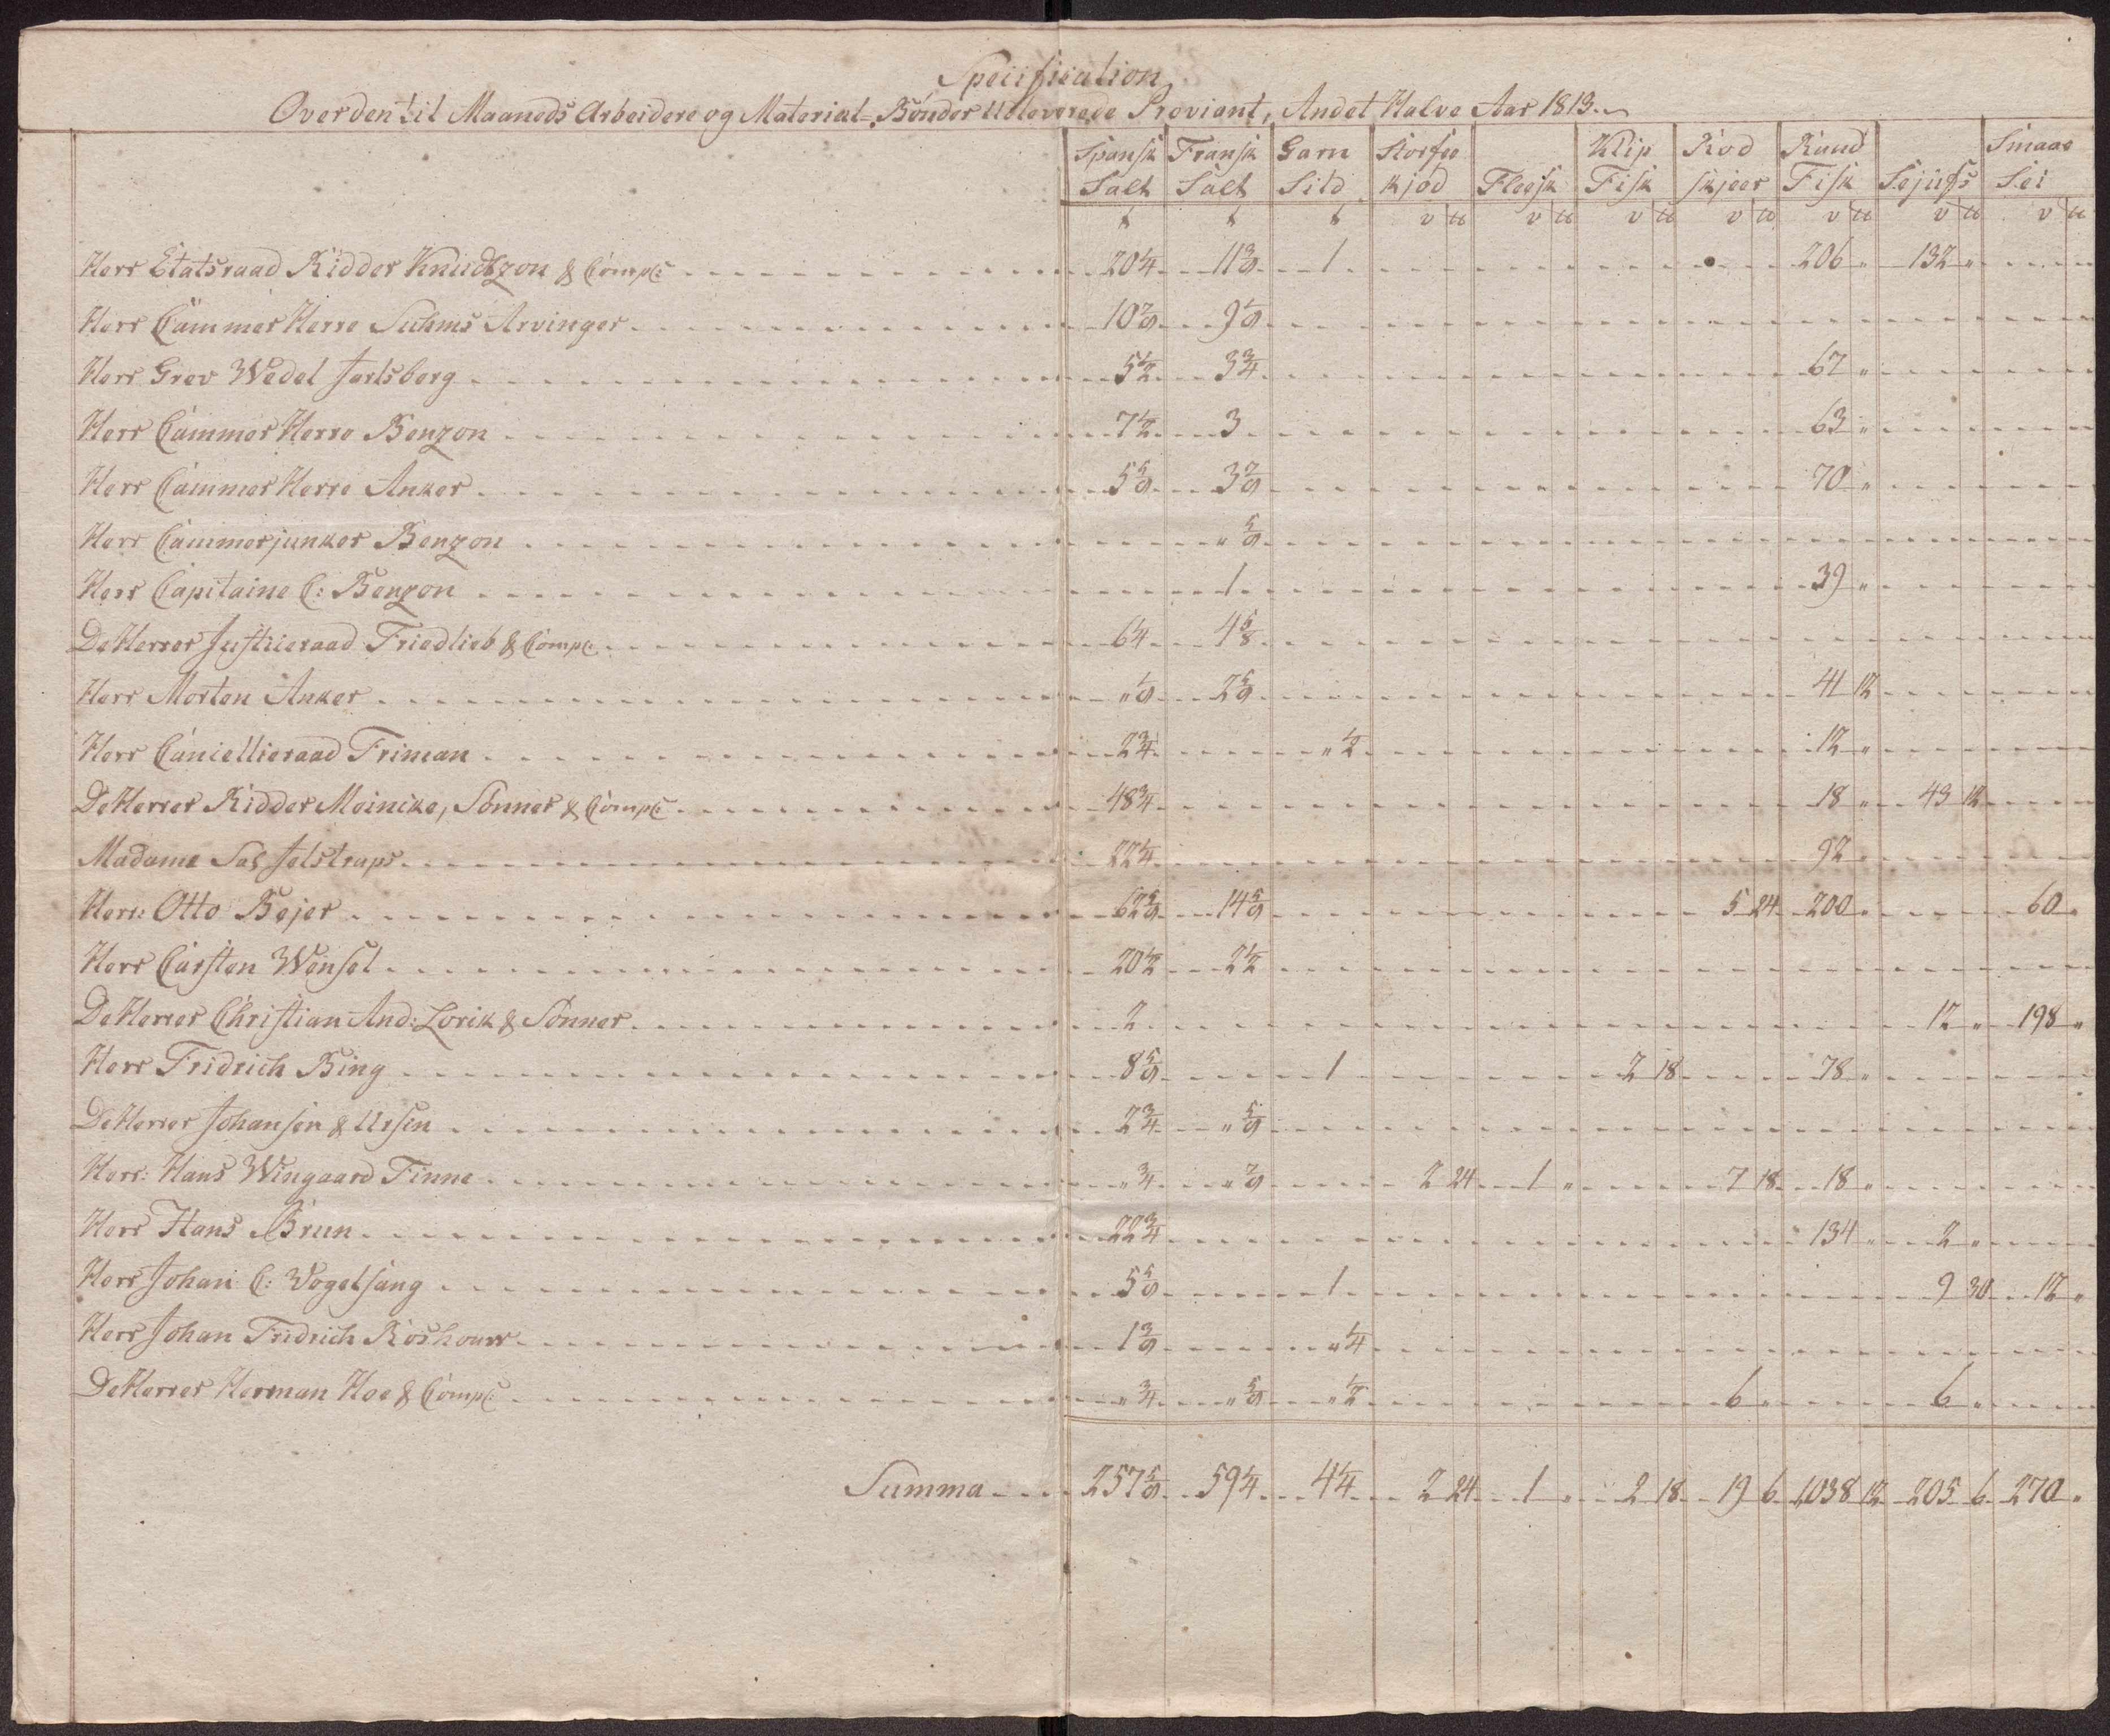 Specification
Over den til Maaneds Arbeidere og Material-Bönder Udleverede Proviant, Andet Halve Aar 1813.
Spansk Salt | Fransk Salt | Garn Sild | Storfee kjød | Fleesk | Klip Fisk | Rod skjeer | Rund Fisk | Sejufs | Smaae Sei
v ℔ v ℔ v ℔ v ℔ v ℔ v ℔ v ℔
Herr Etatsraad Ridder Knudtzon & Comp: 20 1/4 11 3/9 1 206 " 132 "
Herr Cammer Herre Suhms Arvinger 10 7/9 9 1/9
Herr Grev Wedel Jarlsberg 5 1/2 3 3/4 67 "
Herr Cammer Herre Benzon 7 1/2 3 63 "
Herr Cammer Herre Anker 5 5/9 3 7/9 70 "
Herr Cammerjunker Benzon " 5/9
Herr Capitaine C: Benzon 1 39 "
De Herrer Justiceraad Friedlieb & Comp: 6 1/4 4 5/8
Herr Morten Anker " 1/9 2 5/9 41 12
Herr Cancellieraad Friman 2 3/4 " 1/2 12 "
De Herrer Ridder Meincke, Sönner & Comp: 48 3/4 18 " 43 12
Madame Sal Jelstrups 22 1/4 92
Herr: Otto Bejer 62 5/9 14 5/9 5 24 200 " 60 "
Herr Carsten Wensel 20 1/2 2 1/2
De Herrer Christian And: Lorck & Sönner 2 12 " 198 "
Herr Fridrich Bing 8 5/9 1 2 18 78 "
De Herrer Johansen & Ursin 2 3/4 " 5/9
Herr: Hans Wingaard Finne " 3/4 " 7/9 2 24 1 " 7 18 18 "
Herr Hans Brun 22 3/4 134 " 2 "
Herr Johan C: Vogelsang 5 5/9 1 9 30 12 "
Herr Johan Fridrich Roshouw 1 3/9 " 1/4
De Herrer Herman Hoe & Comp: " 3/4 " 5/9 " 1/2 6 " 6 "
Summa 257 5/9 59 1/4 4 1/4 2 24 1 " 2 18 19 6 1038 12 205 6 270 "